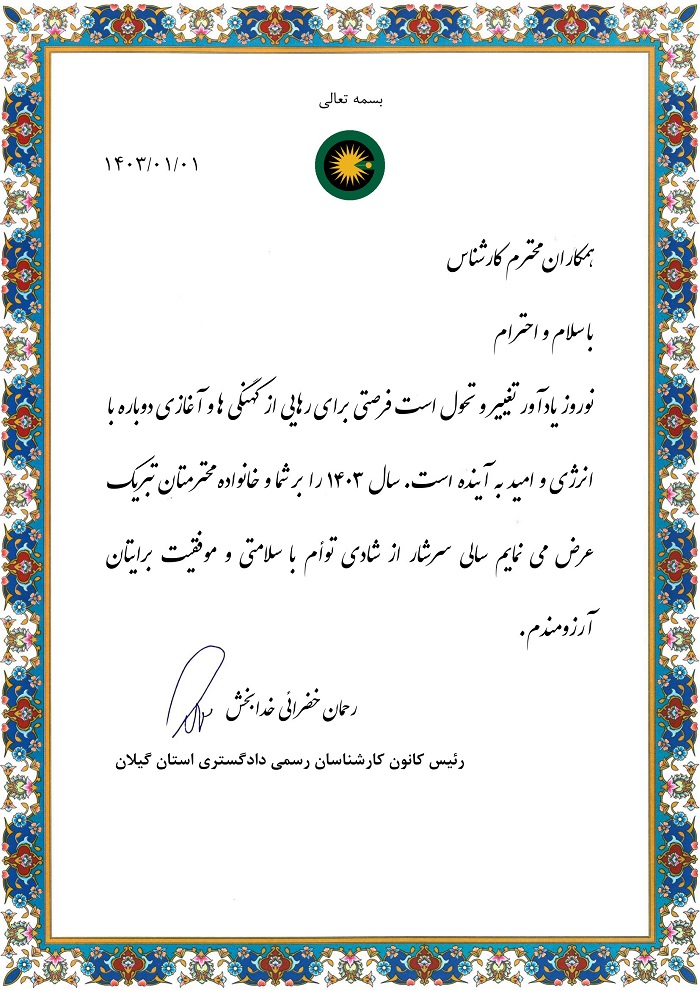 بسمه تعالی
۱۴۰۳/۰۱/۰۱
همکاران محترم کارشناس
با سلام و احترام
نوروز یادآور تغییر و تحول است فرصتی برای رهایی از کهنگی ها و آغازی دوباره با
انرژی و امید به آینده است. سال ۱۴۰۳ را بر شما و خانواده محترمتان تبریک
عرض می نمایم سالی سرشار از شادی توأم با سلامتی و موفقیت برایتان
آرزومندم.
رحمان خضرائی خدابخش
رئیس کانون کارشناسان رسمی دادگستری استان گیلان